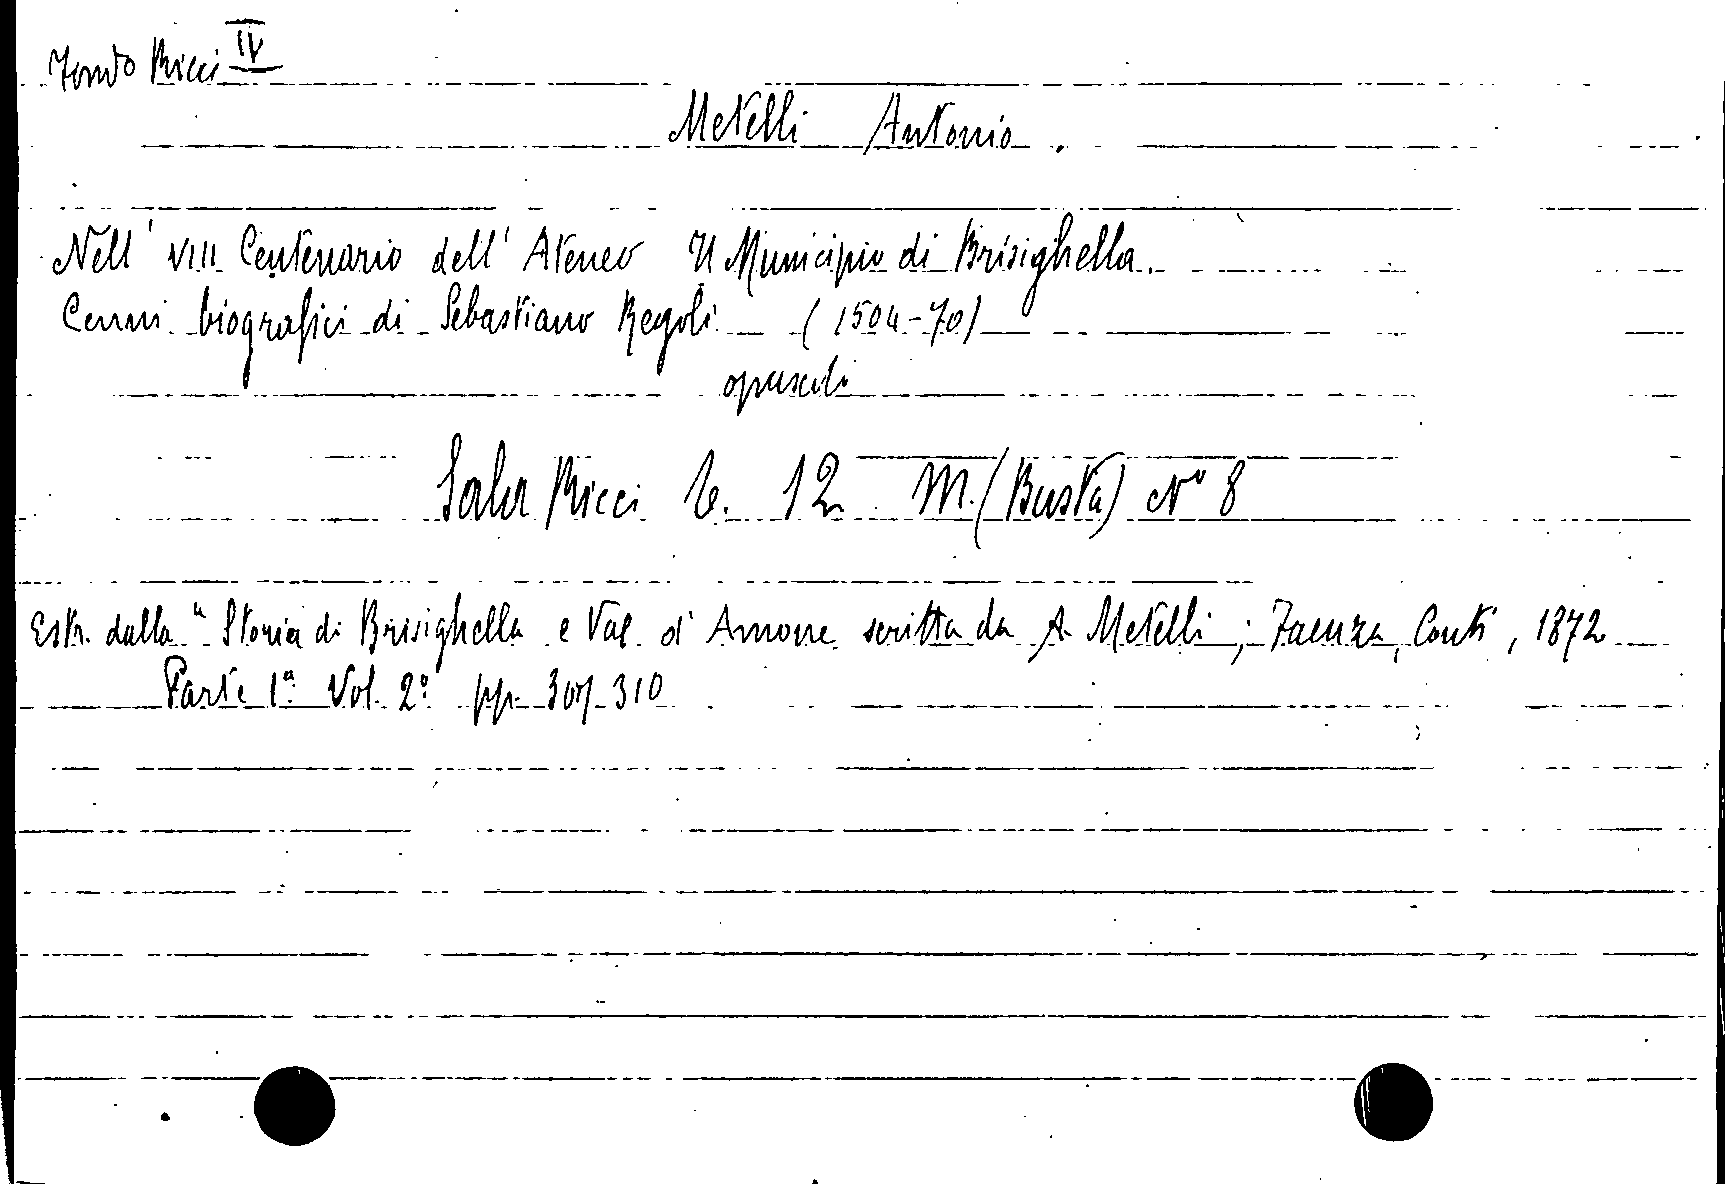 Fondo Ricci IV
Metelli Antonio.
Nell' VIII Centenario dell' Ateneo Il Municipio di Brisighella.
Cenni biografici di Sebastiano Regoli (1504-70)
opuscoli
Sala Ricci 6. 12 M. (Busta) N° 8
Estr. dalla "Storia di Brisighella e Val d'Amone scritta da A. Metelli; Faenza, Conti, 1872
Parte 1ª Vol. 2° pp. 307-310